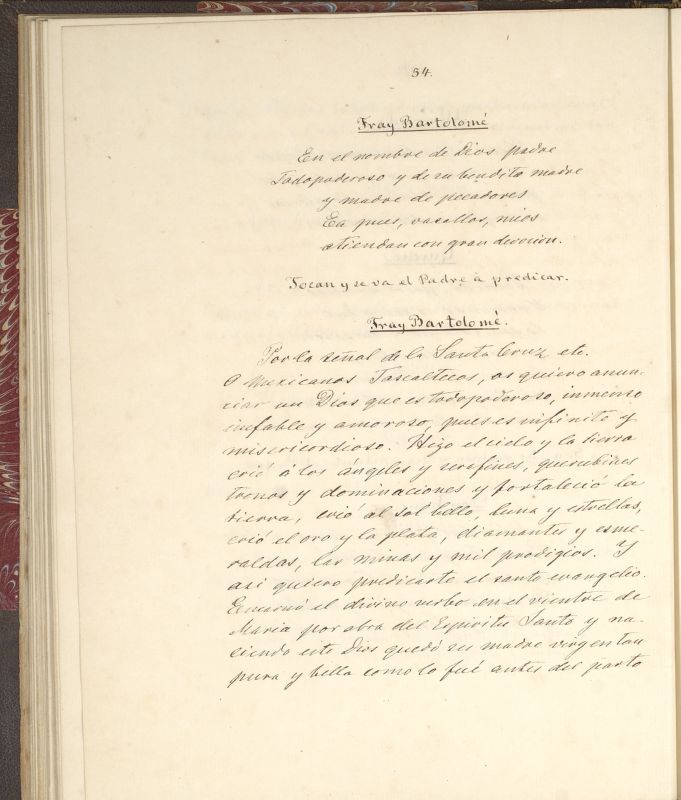 54.
Fray Bartolomé
En el nombre de Dios padre
Todopoderoso y de su bendita madre
y madre de pecadores
Ea pues, vasallos, mios
atiendan con gran devocion.
Tocan y se va el Padre à predicar.
Fray Bartolomé.
Por la señal de la Santa Cruz etc.
O Mexicanos Tascaltecos, os quiero anun-
ciar un Dios que es todopoderoso, inmenso
inefable y amoroso, pues es infinito y
misericordioso. Hizo el cielo y la tierra
crió á los ángeles y serafines, querubines
tronos y dominaciones y fortaleció la
tierra, crió al sol bello, luna y estrellas,
crió el oro y la plata, diamantes y esme-
raldas, las minas y mil prodigios. Y
asi quiero predicarte el santo evangelio.
Encarnó el divino verbo en el vientre de
Maria por obra del Espiritu Santo y na-
ciendo este Dios quedó su madre virgen tan
pura y bella como lo fué antes del parto